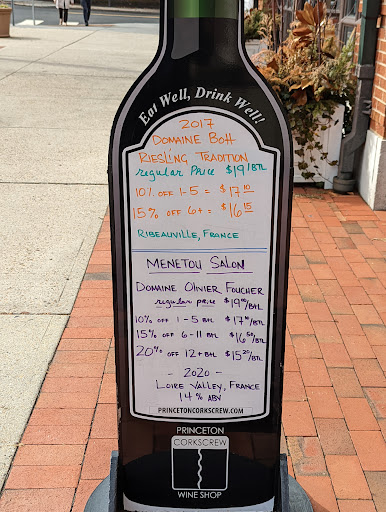 Eat Well, Drink Well!
2017
DOMAINE BOTT
RIESLING TRADITION
regular Price $19/BTL
10% OFF 1-5 = $17.10
15% OFF 6+ = $16.15
RIBEAUVILLE, FRANCE
MENETOU SALON
DOMAINE OLIVIER FOUCHER
regular price $19.00/BTL
10% OFF 1-5 BTL $17.10/BTL
15% OFF 6-11 BTL $16.50/BTL
20% OFF 12+ BTL $15.20/BTL
- 2020 -
LOIRE VALLEY, FRANCE
14% ABV
PRINCETONCORKSCREW.COM
PRINCETON
CORKSCREW
WINE SHOP